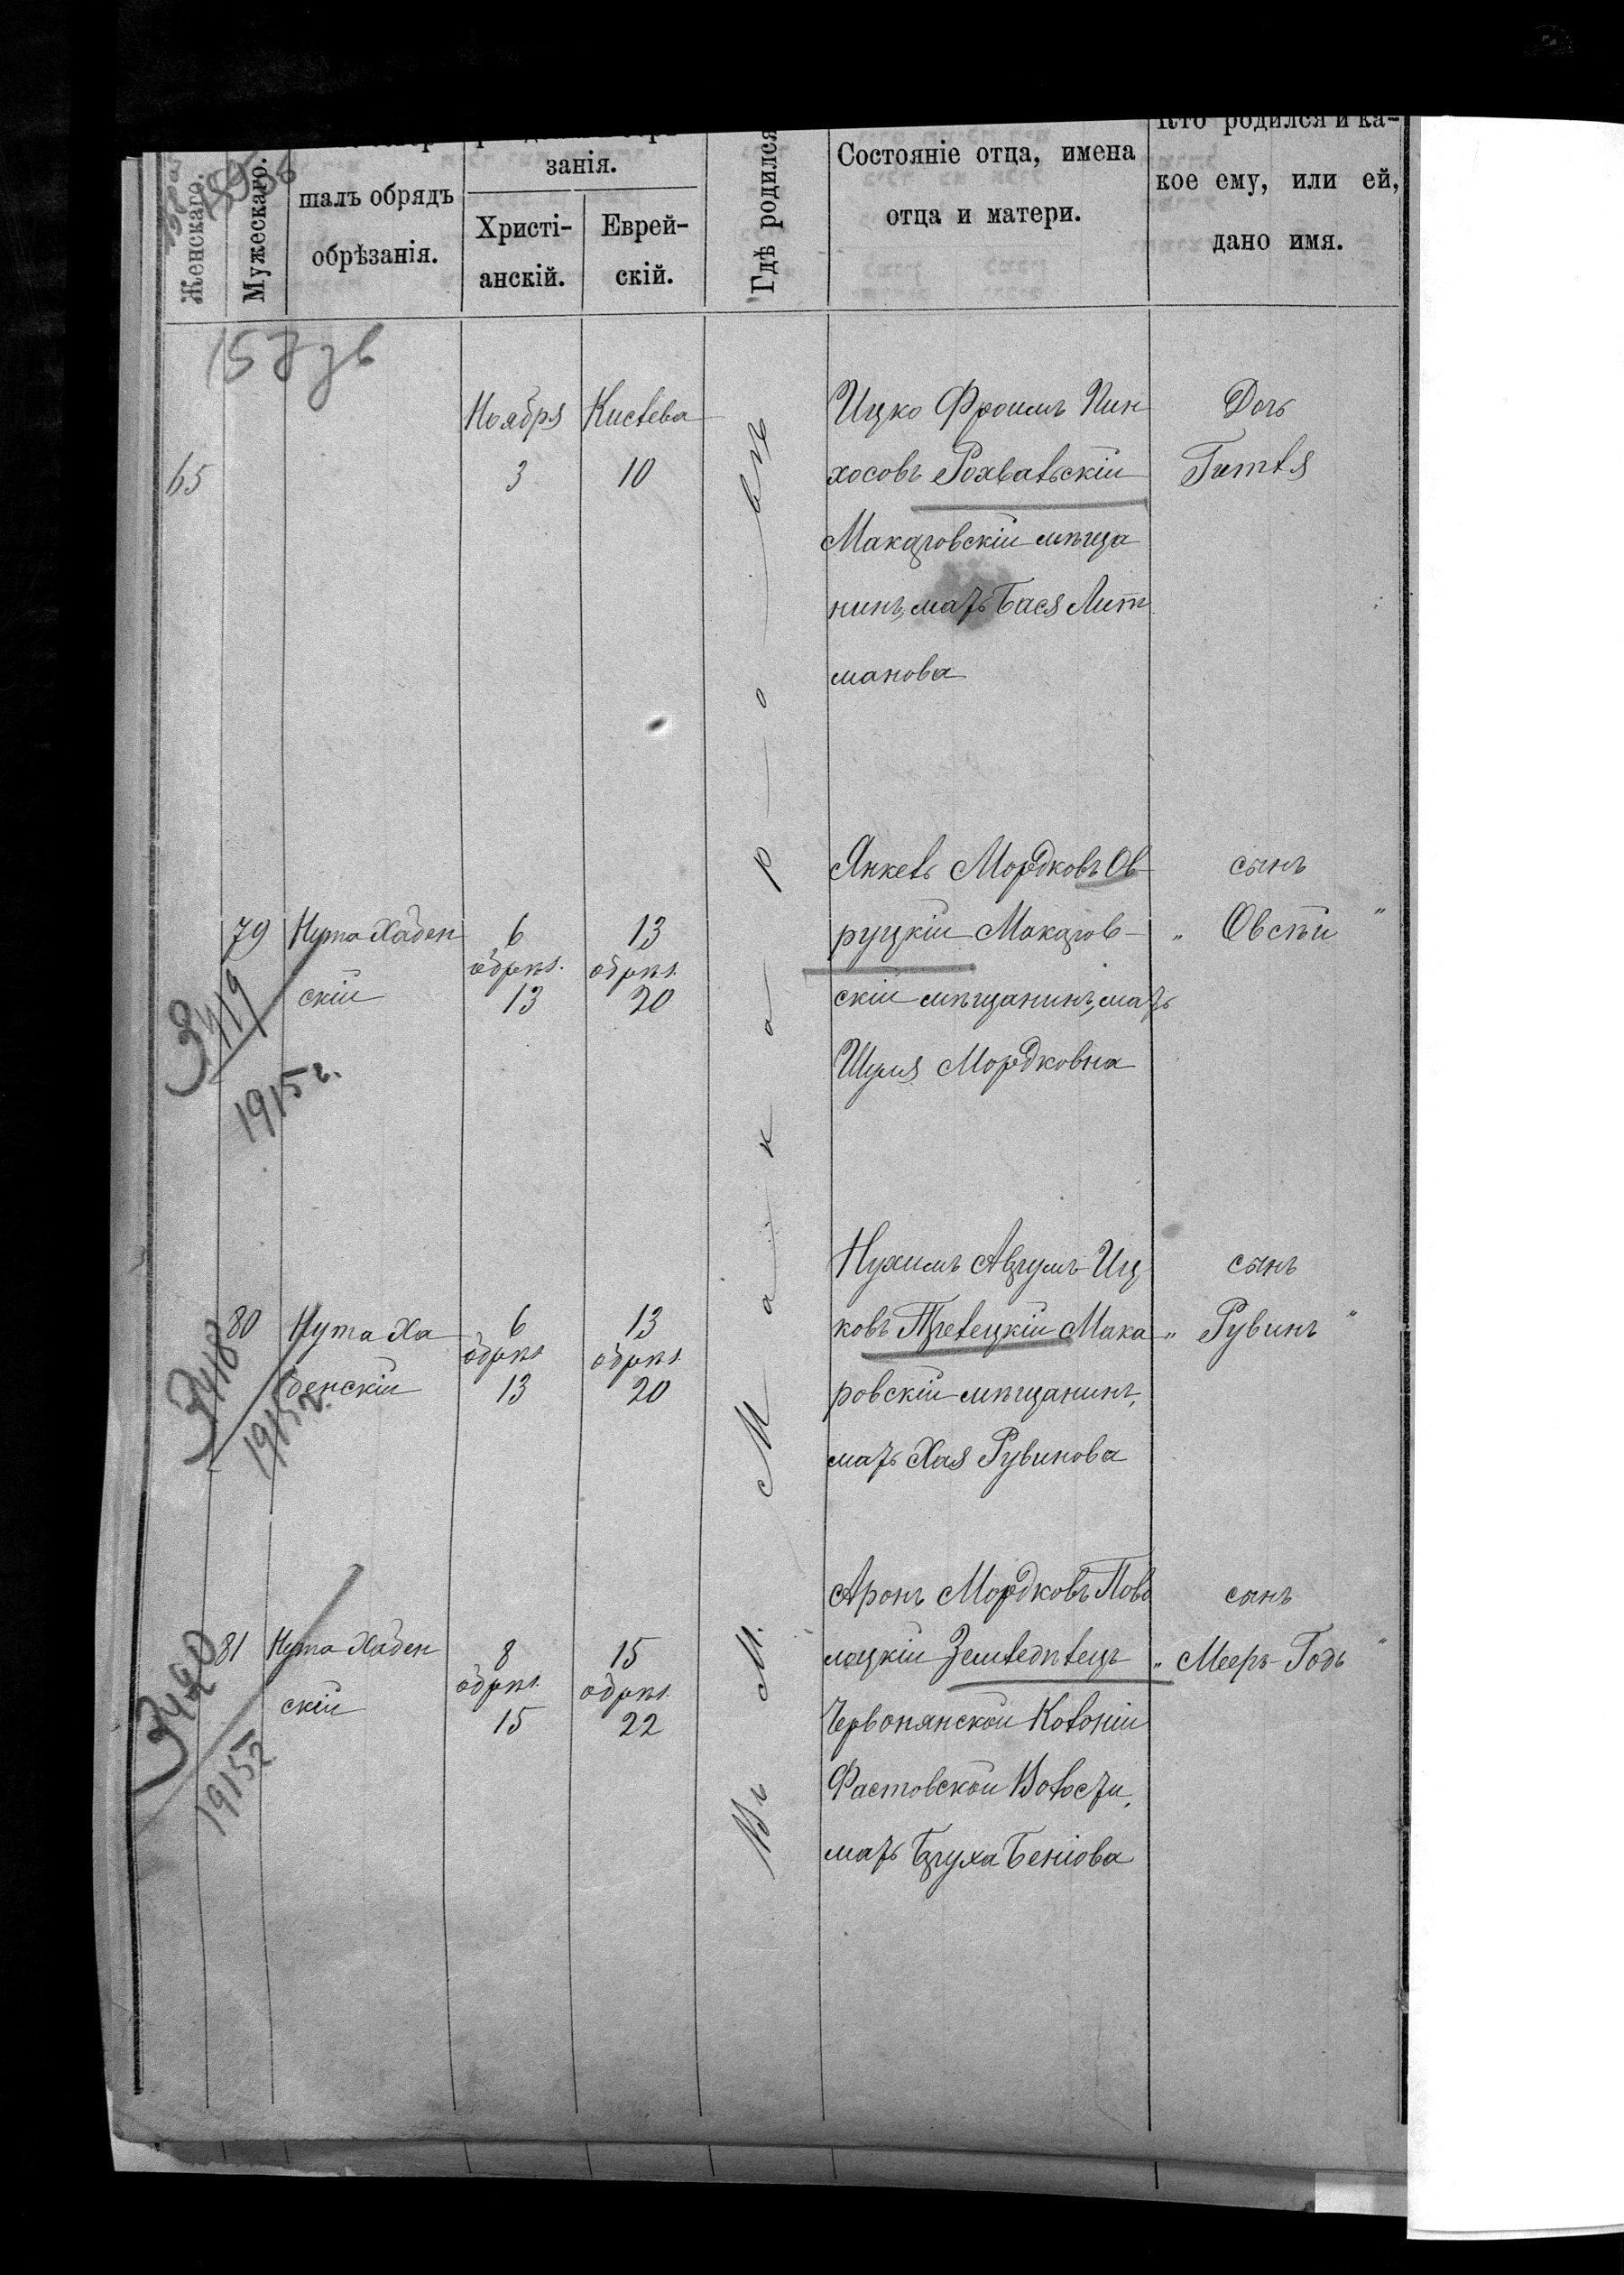 Женскаго.
Мужескаго.
шалъ обрядъ
обрѣзанія.
занія.
Христі-
анскій.
Еврей-
скій.
Гдѣ родился
Состояніе отца, имена
отца и матери.
Кто родился и ка-
кое ему, или ей,
дано имя.
157
Ноября
Кислева
65
3
10
Ицко Фроимъ Пин
хосовъ Рохвальскій
Макаровскій мѣща
нинъ, мать Бася Лит
манова
Дочь
Гитля
79
Нута Хаден
скій
6
обрѣз.
13
13
обрѣз.
20
Янкель Мордковъ Ов
руцкій Макаров-
скій мѣщанинъ, мать
Шуля Мордковна
сынъ
„ Овсѣй "
3419
1915 г.
80
Нута Ха
денскій
6
обрѣз
13
13
обрѣз.
20
Нухимъ Аврумъ Иц
ковъ Трелецкій Мака
ровскій мѣщанинъ,
мать Хая Рувинова
сынъ
„ Рувинъ "
3418
1915 г.
81
Нута Хаден
скій
8
обрѣз.
15
15
обрѣз.
22
Аронъ Мордковъ Пово
лоцкій Земледѣлецъ
Червонянской Колоніи
Фастовской Волости,
мать Бруха Беніова
сынъ
„ Мееръ-Годь "
3420
1915 г
Въ М. Макаровѣ